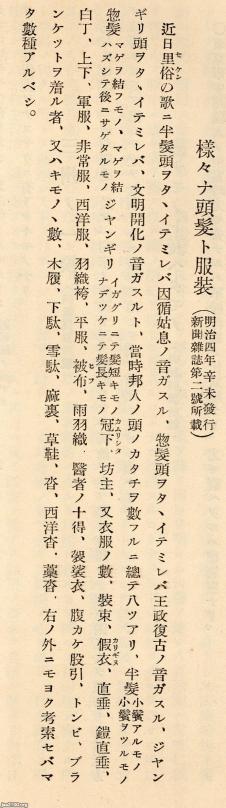 様々ナ頭髮ト服裝（明治四年辛未發行新聞雜誌第二號所載）
近日里俗ノ歌ニ半髮頭ヲタヽイテミレバ因循姑息ノ音ガスル、惣髮頭ヲタヽイテミレバ王政復古ノ音ガスル、ジヤン
ギリ頭ヲタヽイテミレバ、文明開化ノ音ガスルト、當時邦人ノ頭ノカタチヲ數フルニ總テ八ツアリ、半髮小鬢アルモノ小鬢ヲツルモノ
惣髮マゲヲ結フモノ、マゲヲ結ハズシテ後ニサゲタルモノジヤンギリイガグリニテ髮短キモノナデツケニテ髮長キモノ冠下、坊主、又衣服ノ數、裝束、假衣、直垂、鎧直垂、
白丁、上下、軍服、非常服、西洋服、羽織袴、平服、被布、雨羽織、醫者ノ十得、袈裟衣、腹カケ股引、トンビ、ブラ
ンケツトヲ着ル者、又ハキモノヽ數、木履、下駄、雪駄、麻裏、草鞋、沓、西洋沓、藁沓、右ノ外ニモヨク考索セバマ
タ數種アルベシ。
jaa2100.org